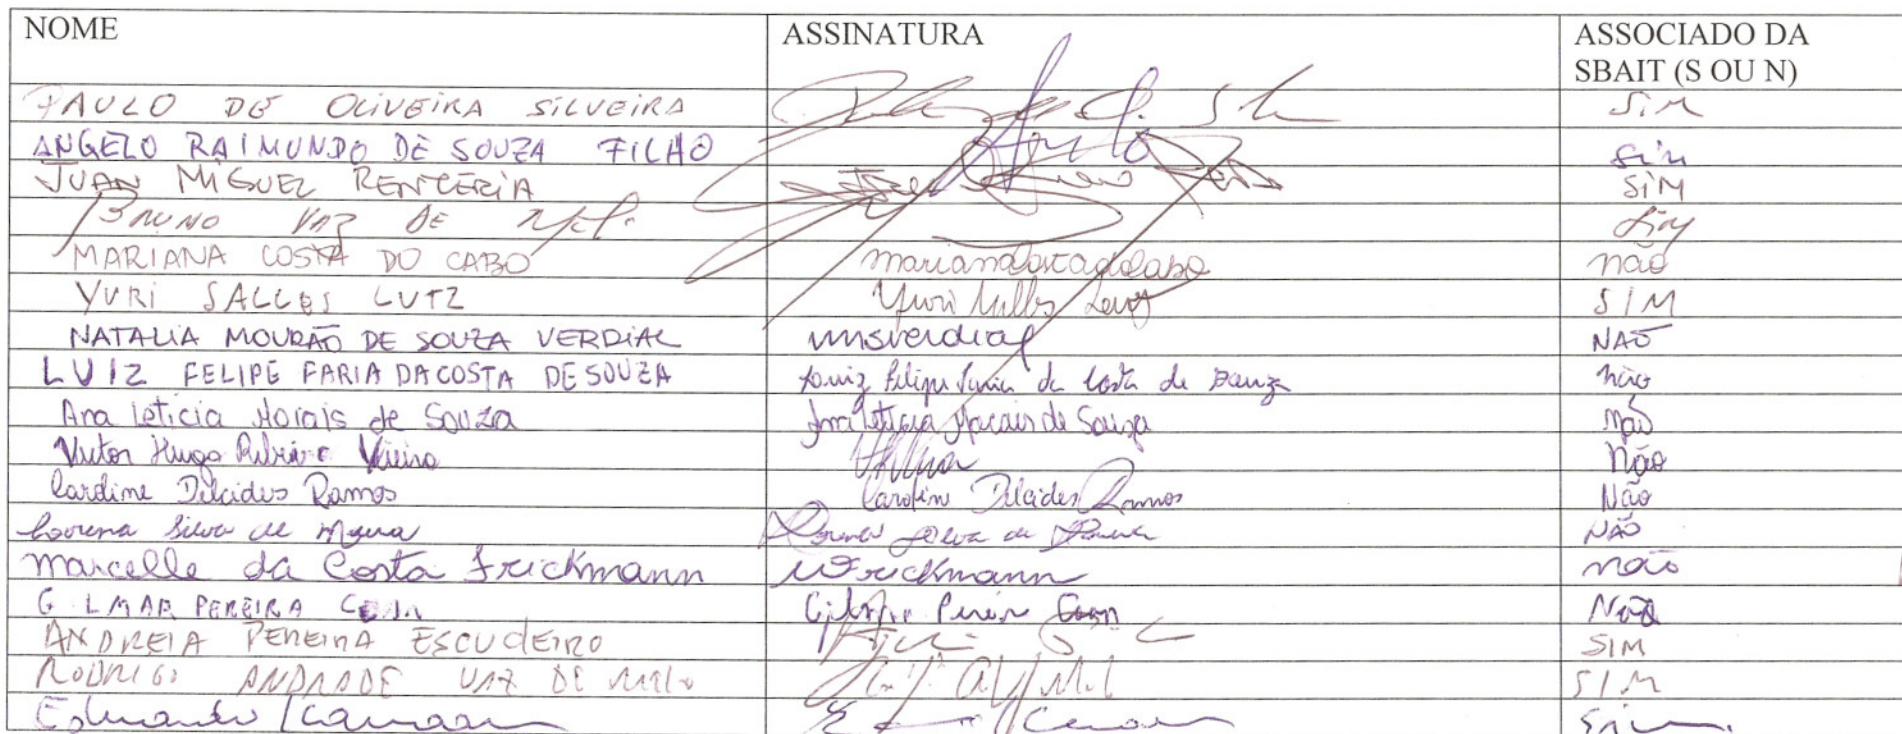 NOME ASSINATURA ASSOCIADO DA
SBAIT (S OU N)
PAULO DE OLIVEIRA SILVEIRA SiM
ANGELO RAIMUNDO DE SOUZA FILHO Sim
JUAN MIGUEL RENTERIA SiM
BRUNO VAZ DE Sim
MARIANA COSTA DO CABO marianacostadocabo não
YURI SALLES LUTZ Yuri SIM
NATALIA MOURÃO DE SOUZA VERDIAL nmsverdial NAÕ
LUIZ FELIPE FARIA DA COSTA DE SOUZA Luiz Felipe Faria da Costa de Souza não
Ana Leticia Morais de Souza Ana Leticia Morais de Souza Não
Victor Hugo Ribeiro Vieira Não
Caroline Dilcides Ramos Caroline Dilcides Ramos Não
Lorena Silva de Moura Lorena Silva de Moura NÃO
Marcelle da Costa Frickmann Frickmann não
GILMAR PEREIRA Gilmar Não
ANDREIA PEREIRA ESCUDEIRO SIM
RODRIGO ANDRADE VAZ DE Melo SIM
Eduardo Sim.